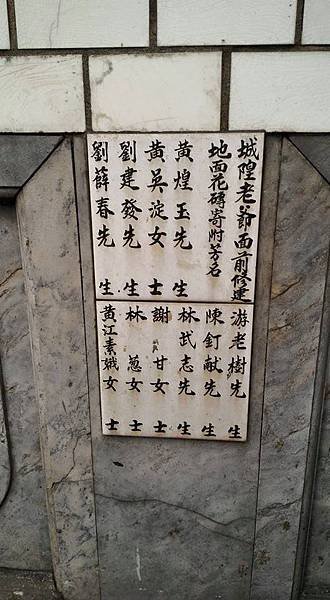 城隍老爺面前修建
地面花磚寄附芳名
黃煌玉先生
黃吳淀女士
劉建發先生
劉薛春先生
游老樹先生
陳釘献先生
林武志先生
謝甘女士
林葱女士
黃江素娥女士